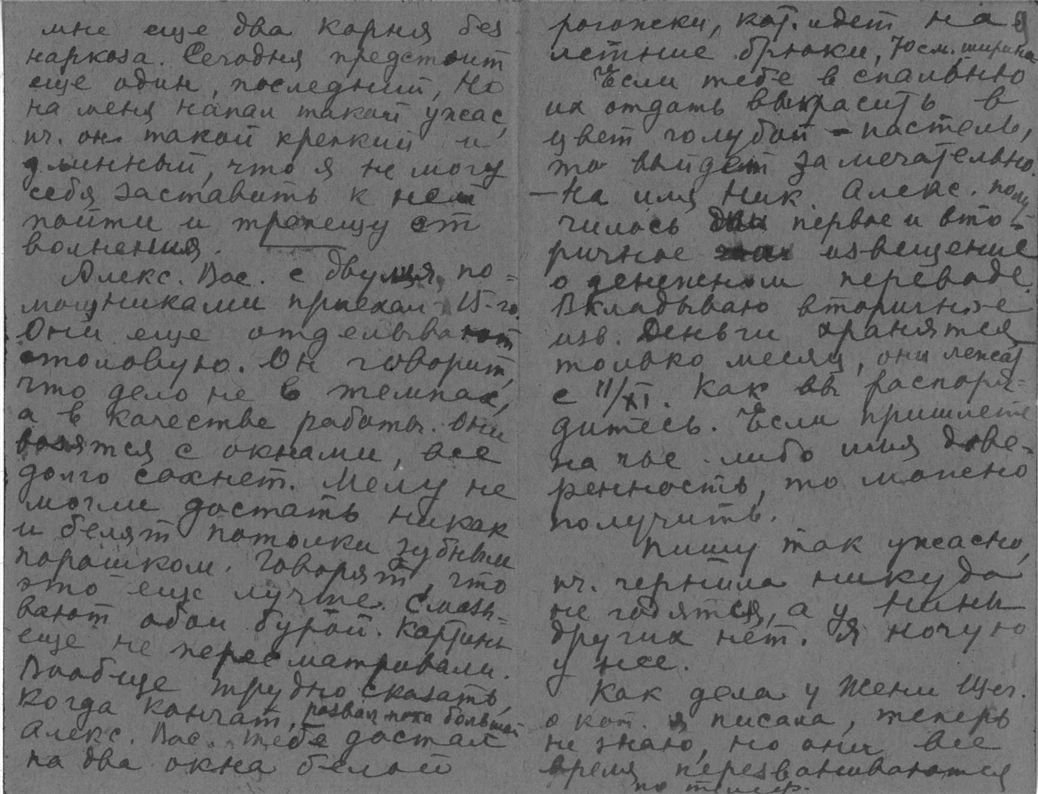 мне еще два корня без
наркоза. Сегодня предстоит
еще один, последний, но
на меня напал такой ужас,
пч. он такой крепкий и
длинный, что я не могу
себя заставить к ней
пойти и трепещу от
волнения.
Алекс. Вас. с двумя по=
мощниками приехал 15-го
Они еще отделывают
столовую. Он говорит,
что дело не в темпах,
а в качестве работы. Они
возятся с окнами, все
долго сохнет. Мелу не
могли достать никак
и белят потолки зубным
порошком. Говорят, что
это еще лучше. Смазы=
вают обои бурой. Картины
еще не пересматривали.
Вообще трудно сказать,
когда кончат, развал пока большой
Алекс. Вас. тебе достал
на два окна белой
рогожски, кот. идет на
летние брюки, 70 см. ширина
Если тебе в спальню
их отдать выкрасить в
цвет голубой - пастель,
то выйдет замечательно.
— На имя Ник. Алекс. полу-
чилось первое и вто-
ричное извещение
о денежном переводе.
Вкладываю вторичное
изв. Деньги хранятся
только месяц, они лежат
с 11/XI. Как вы распоря=
дитесь. Если пришлете
на чье-либо имя дове-
ренность, то можно
получить.
Пишу так ужасно,
пч. чернила никуда
не годятся, а у Нины
других нет. Я ночую
у нее.
Как дела у Жени
о кот. я писала, теперь
не знаю, но они все
время перезваниваются
по телеф.